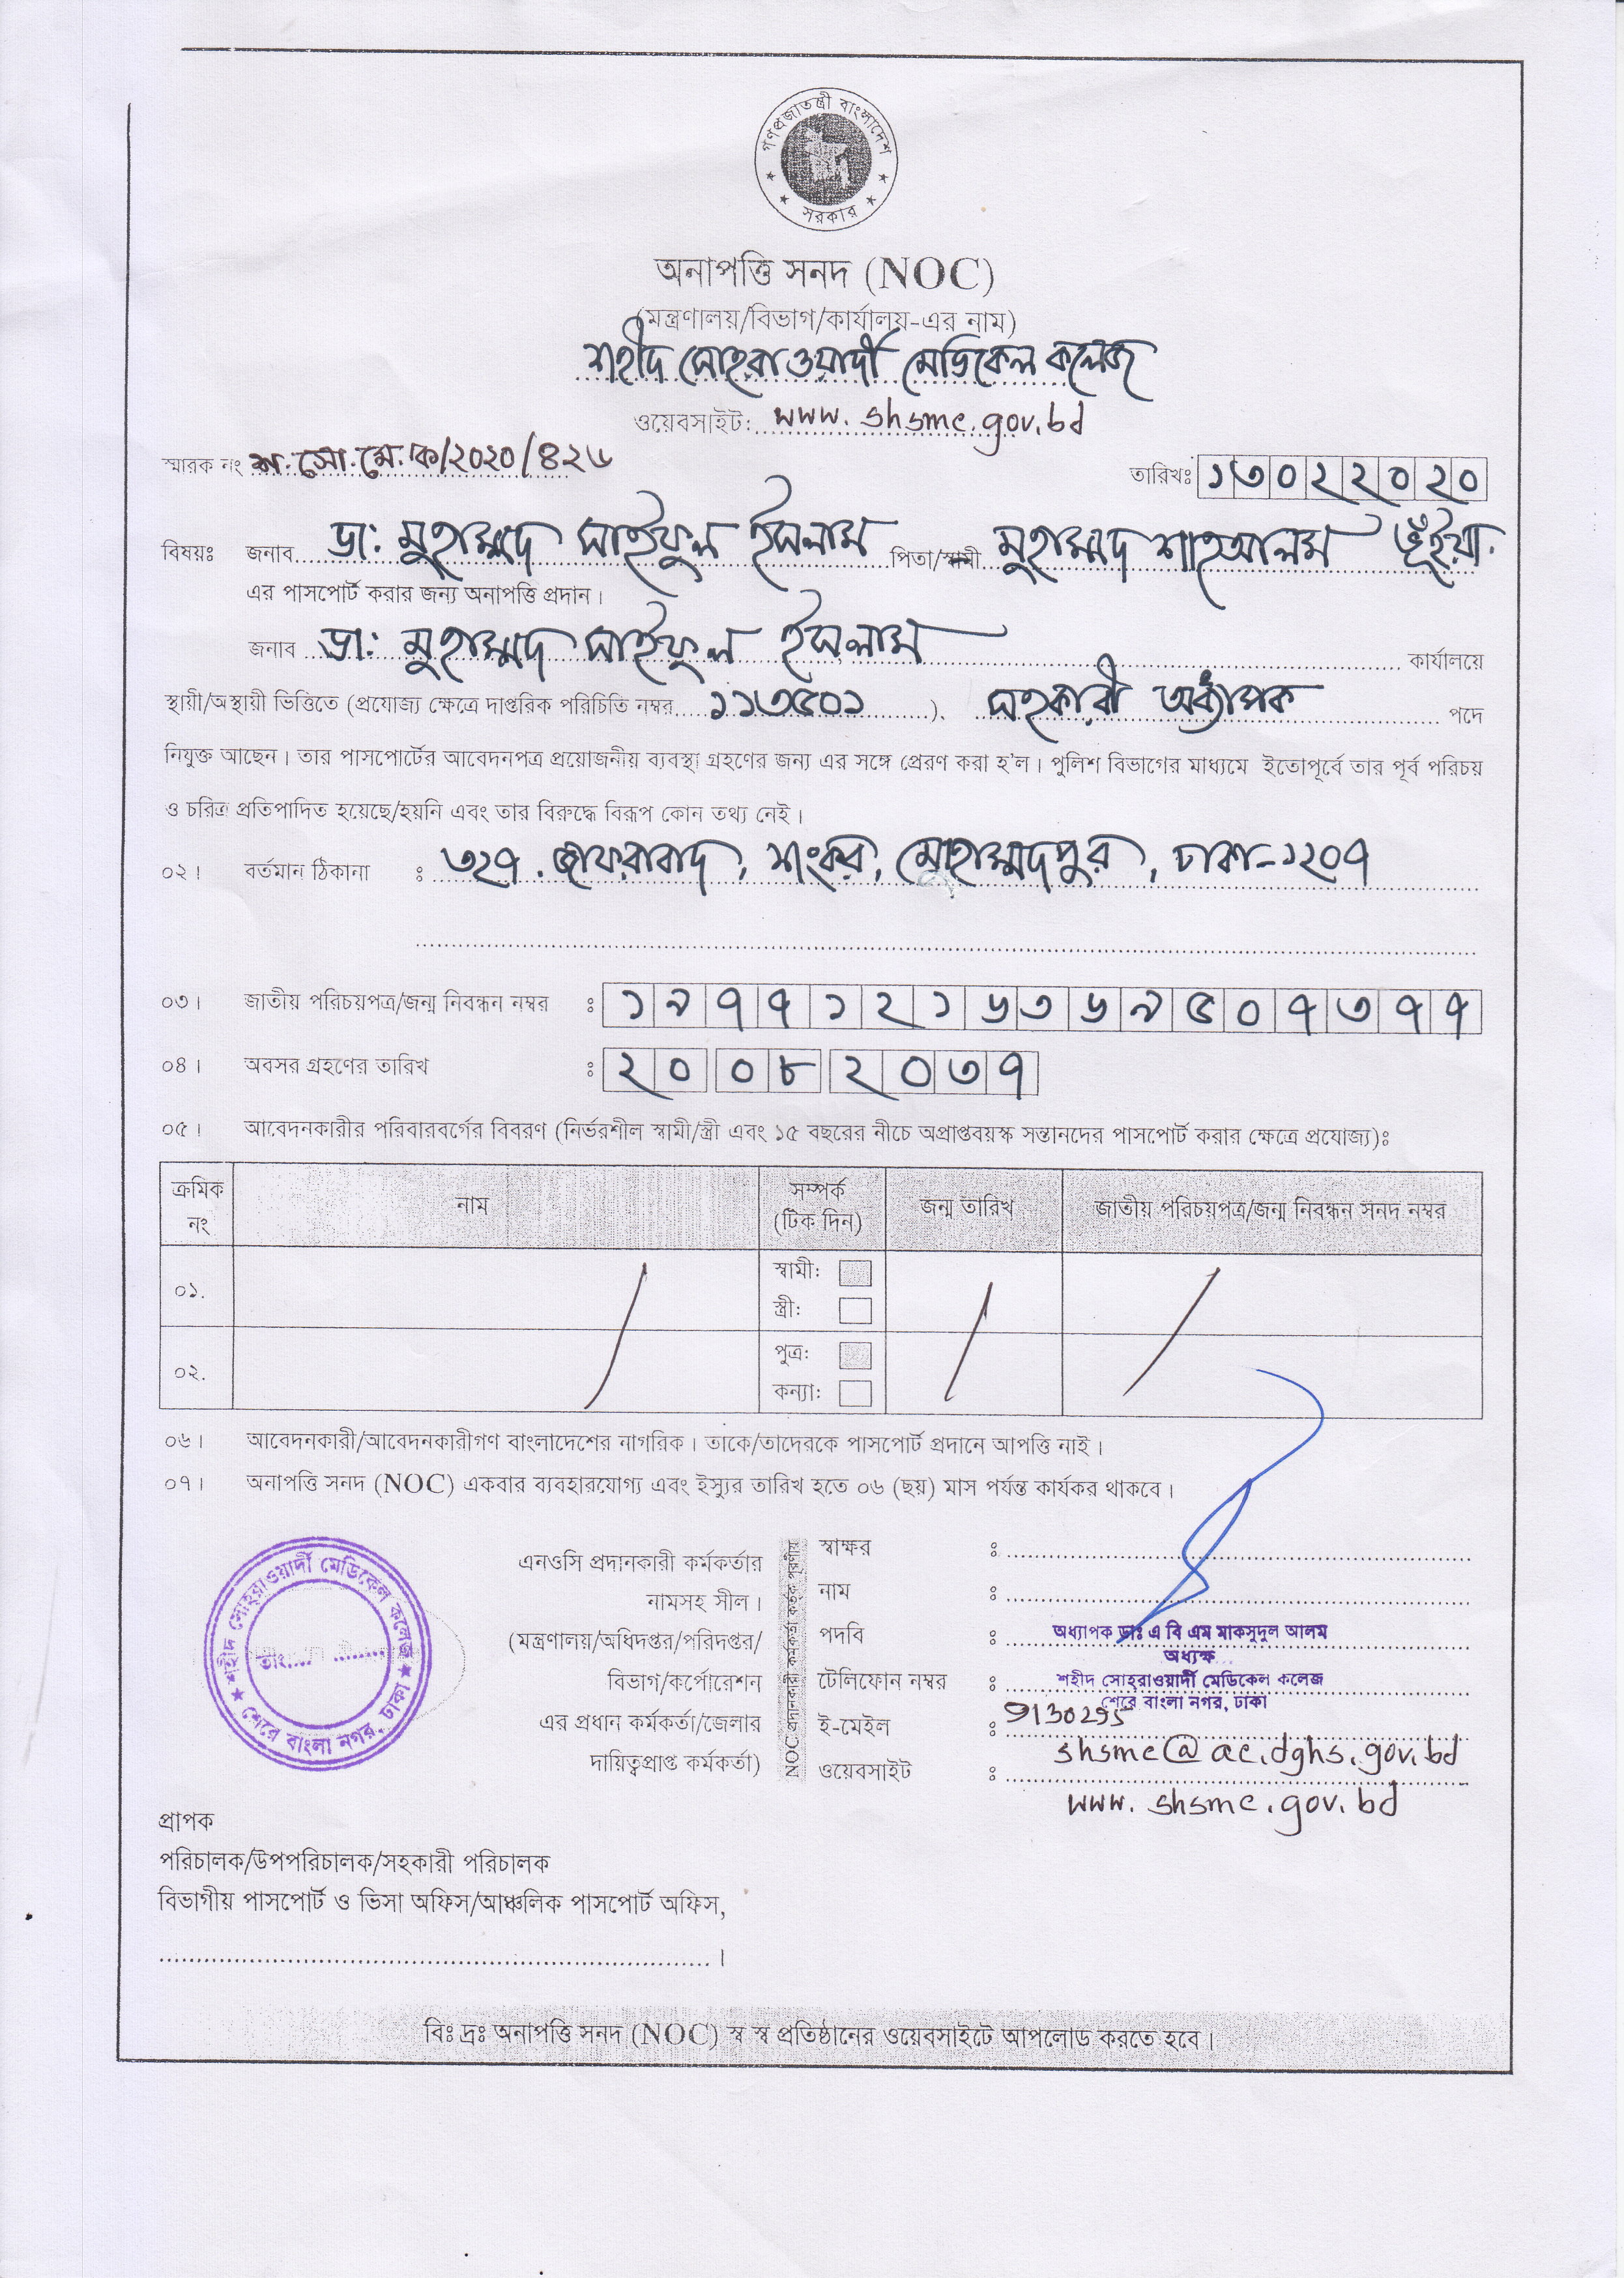 গণপ্রজাতন্ত্রী বাংলাদেশ
সরকার
অনাপত্তি সনদ (NOC)
(মন্ত্রণালয়/বিভাগ/কার্যালয়-এর নাম)
শহীদ সোহরাওয়ার্দী মেডিকেল কলেজ
ওয়েবসাইট: www.shsmc.gov.bd
স্মারক নং শ.সো.মে.ক/২০২০/৪২৬
তারিখঃ ১৩০২২০২০
বিষয়ঃ জনাব ডা: মুহাম্মদ সাইফুল ইসলাম পিতা/স্বামী মুহাম্মদ শাহআলম ভূঁইয়া
এর পাসপোর্ট করার জন্য অনাপত্তি প্রদান।
জনাব ডা: মুহাম্মদ সাইফুল ইসলাম কার্যালয়ে
স্থায়ী/অস্থায়ী ভিত্তিতে (প্রযোজ্য ক্ষেত্রে দাপ্তরিক পরিচিতি নম্বর ১১৩৫০১ ), সহকারী অধ্যাপক পদে
নিযুক্ত আছেন। তার পাসপোর্টের আবেদনপত্র প্রয়োজনীয় ব্যবস্থা গ্রহণের জন্য এর সঙ্গে প্রেরণ করা হ'ল। পুলিশ বিভাগের মাধ্যমে ইতোপূর্বে তার পূর্ব পরিচয়
ও চরিত্র প্রতিপাদিত হয়েছে/হয়নি এবং তার বিরুদ্ধে বিরূপ কোন তথ্য নেই।
০২। বর্তমান ঠিকানা : ৩২৭, জাফরাবাদ, শংকর, মোহাম্মদপুর, ঢাকা-১২০৭
০৩। জাতীয় পরিচয়পত্র/জন্ম নিবন্ধন নম্বর : ১৯৭৭১২১৬৩৬৯৫০৭৩৭৭
০৪। অবসর গ্রহণের তারিখ : ২০০৮২০৩৭
০৫। আবেদনকারীর পরিবারবর্গের বিবরণ (নির্ভরশীল স্বামী/স্ত্রী এবং ১৫ বছরের নীচে অপ্রাপ্তবয়স্ক সন্তানদের পাসপোর্ট করার ক্ষেত্রে প্রযোজ্য)ঃ
ক্রমিক নং নাম সম্পর্ক (টিক দিন) জন্ম তারিখ জাতীয় পরিচয়পত্র/জন্ম নিবন্ধন সনদ নম্বর
০১. স্বামী:
স্ত্রী:
০২. পুত্র:
কন্যা:
০৬। আবেদনকারী/আবেদনকারীগণ বাংলাদেশের নাগরিক। তাকে/তাদেরকে পাসপোর্ট প্রদানে আপত্তি নাই।
০৭। অনাপত্তি সনদ (NOC) একবার ব্যবহারযোগ্য এবং ইস্যুর তারিখ হতে ০৬ (ছয়) মাস পর্যন্ত কার্যকর থাকবে।
শহীদ সোহরাওয়ার্দী মেডিকেল কলেজ
তাং....
শেরে বাংলা নগর, ঢাকা
এনওসি প্রদানকারী কর্মকর্তার
নামসহ সীল।
(মন্ত্রণালয়/অধিদপ্তর/পরিদপ্তর/
বিভাগ/কর্পোরেশন
এর প্রধান কর্মকর্তা/জেলার
দায়িত্বপ্রাপ্ত কর্মকর্তা)
NOC প্রদানকারী কর্মকর্তা কর্তৃক পূরণীয়
স্বাক্ষর :
নাম :
পদবি : অধ্যাপক ডাঃ এ বি এম মাকসুদুল আলম
অধ্যক্ষ
টেলিফোন নম্বর : শহীদ সোহরাওয়ার্দী মেডিকেল কলেজ
শেরে বাংলা নগর, ঢাকা
9130295
ই-মেইল : shsmc@ac.dghs.gov.bd
ওয়েবসাইট : www.shsmc.gov.bd
প্রাপক
পরিচালক/উপপরিচালক/সহকারী পরিচালক
বিভাগীয় পাসপোর্ট ও ভিসা অফিস/আঞ্চলিক পাসপোর্ট অফিস,
বিঃ দ্রঃ অনাপত্তি সনদ (NOC) স্ব স্ব প্রতিষ্ঠানের ওয়েবসাইটে আপলোড করতে হবে।